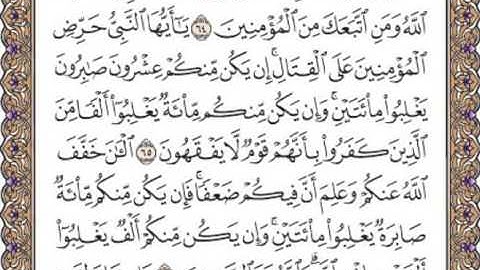 ٱللَّهُ وَمَنِ ٱتَّبَعَكَ مِنَ ٱلْمُؤْمِنِينَ ٦٤ يَٰٓأَيُّهَا ٱلنَّبِيُّ حَرِّضِ
ٱلْمُؤْمِنِينَ عَلَى ٱلْقِتَالِ ۚ إِن يَكُن مِّنكُمْ عِشْرُونَ صَٰبِرُونَ
يَغْلِبُوا۟ مِا۟ئَتَيْنِ ۚ وَإِن يَكُن مِّنكُم مِّا۟ئَةٌ يَغْلِبُوٓا۟ أَلْفًا مِّنَ
ٱلَّذِينَ كَفَرُوا۟ بِأَنَّهُمْ قَوْمٌ لَّا يَفْقَهُونَ ٦٥ ٱلْـَٰٔنَ خَفَّفَ
ٱللَّهُ عَنكُمْ وَعَلِمَ أَنَّ فِيكُمْ ضَعْفًا ۚ فَإِن يَكُن مِّنكُم مِّا۟ئَةٌ
صَابِرَةٌ يَغْلِبُوا۟ مِا۟ئَتَيْنِ ۚ وَإِن يَكُن مِّنكُمْ أَلْفٌ يَغْلِبُوٓا۟